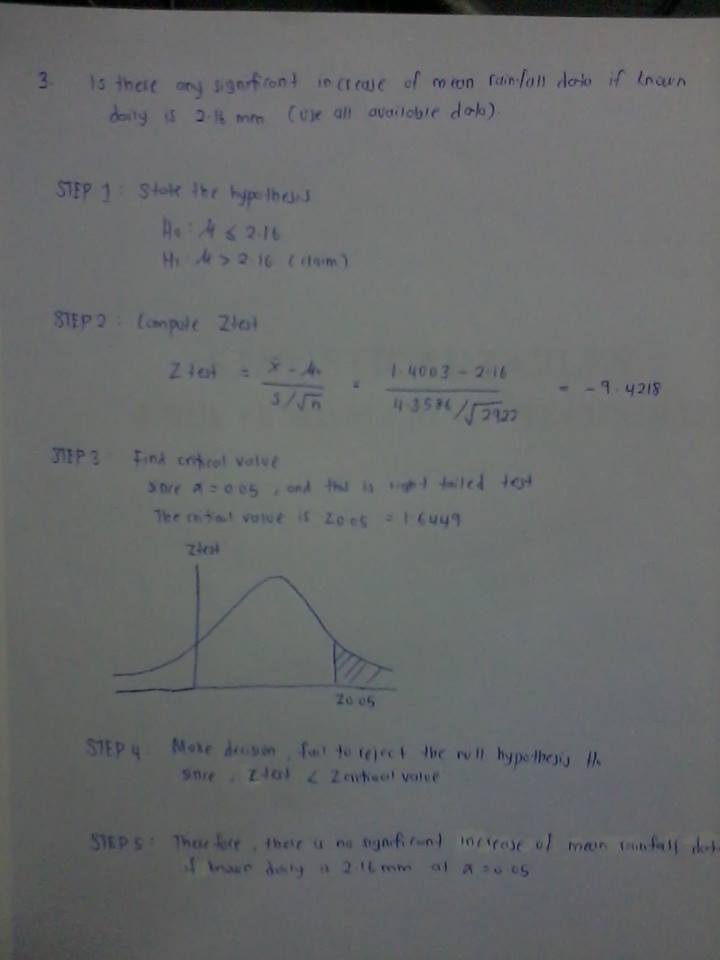 3. Is there any significant increase of mean rainfall data if known
daily is 2.16 mm (use all available data).
STEP 1: State the hypothesis
H₀: μ ≤ 2.16
H₁ μ > 2.16 (claim)
STEP 2: Compute Ztest
Ztest = x̄ - μ₀ / s/√n = 1.4003 - 2.16 / 4.3586/√2922 = -9.4218
STEP 3 Find critical value
since α = 0.05, and this is right tailed test
The critical value is Z0.05 = 1.6449
Ztest
Z0.05
STEP 4: Make decision, fail to reject the null hypothesis H₀
since, Ztest < Zcritical value
STEP 5: Therefore, there is no significant increase of mean rainfall dat
if known daily is 2.16 mm at α = 0.05